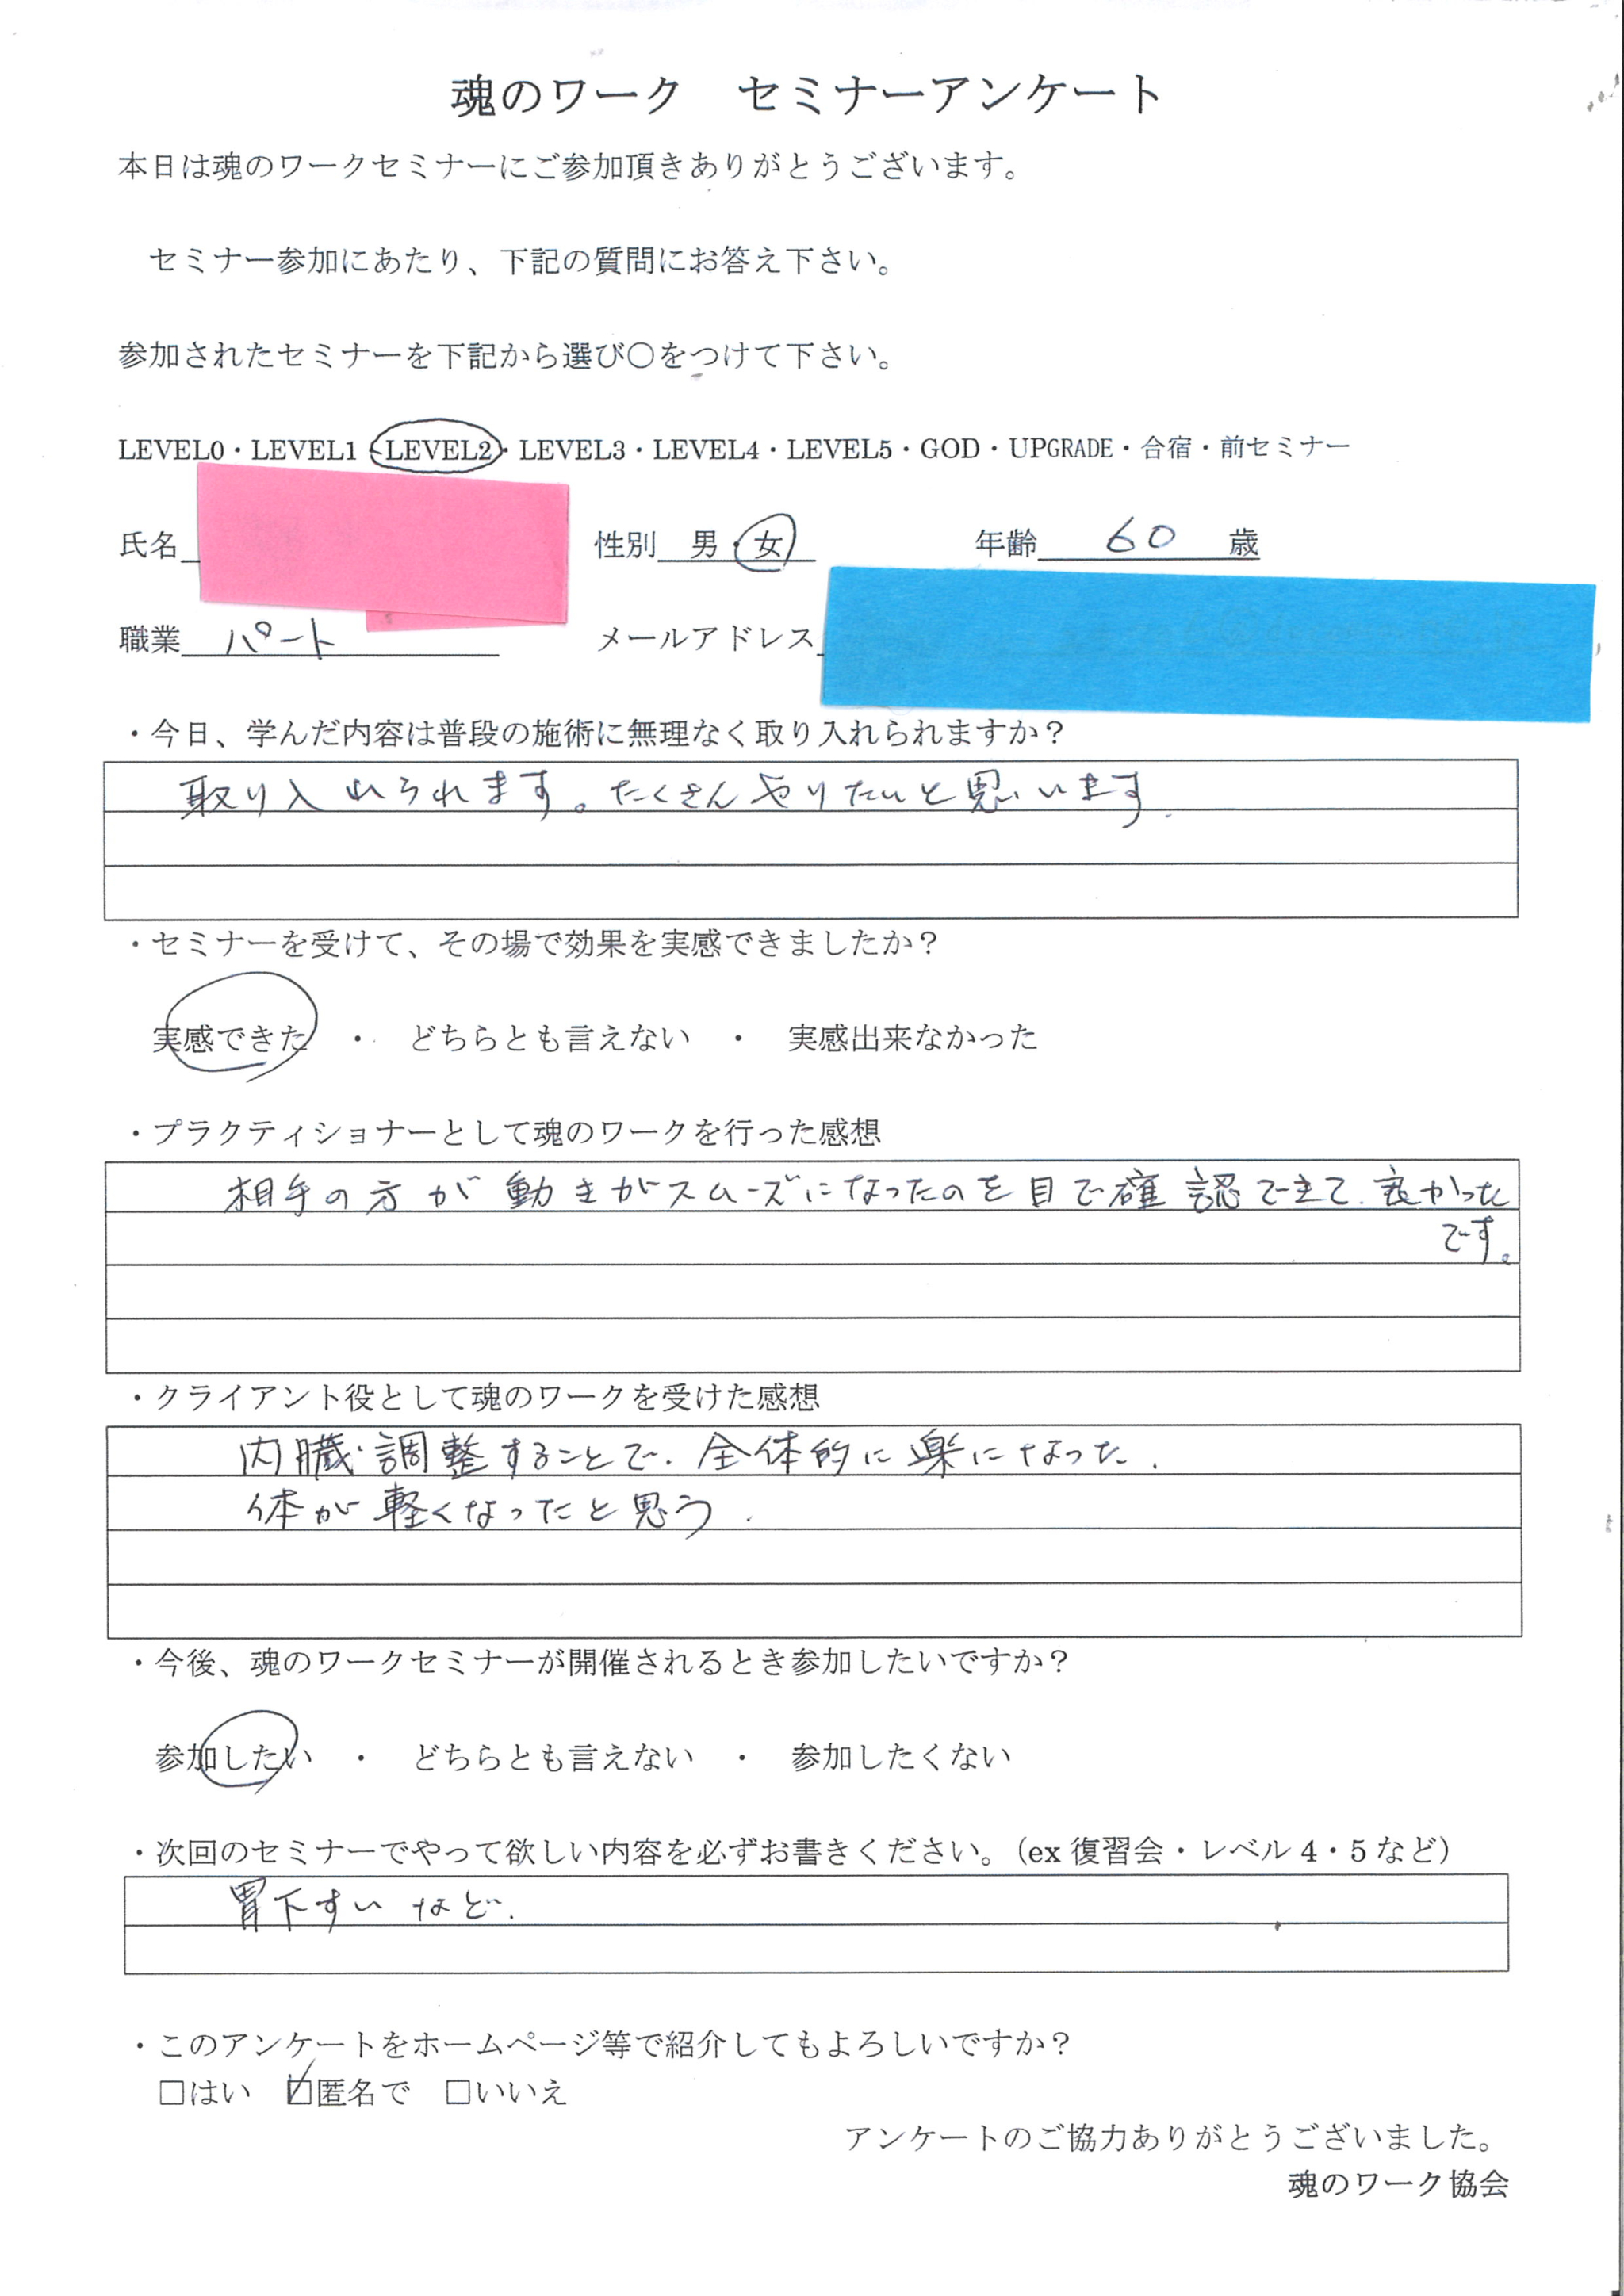 魂のワーク　セミナーアンケート
本日は魂のワークセミナーにご参加頂きありがとうございます。
セミナー参加にあたり、下記の質問にお答え下さい。
参加されたセミナーを下記から選び〇をつけて下さい。
LEVEL0・LEVEL1・LEVEL2・LEVEL3・LEVEL4・LEVEL5・GOD・UPGRADE・合宿・前セミナー
氏名　性別　男・女　年齢　60　歳
職業　パート　メールアドレス
・今日、学んだ内容は普段の施術に無理なく取り入れられますか？
取り入れられます。たくさんやりたいと思います
・セミナーを受けて、その場で効果を実感できましたか？
実感できた　・　どちらとも言えない　・　実感出来なかった
・プラクティショナーとして魂のワークを行った感想
相手の方が動きがスムーズになったのを目で確認できて、良かった
です。
・クライアント役として魂のワークを受けた感想
内臓調整することで、全体的に楽になった.
体が軽くなったと思う.
・今後、魂のワークセミナーが開催されるとき参加したいですか？
参加したい　・　どちらとも言えない　・　参加したくない
・次回のセミナーでやって欲しい内容を必ずお書きください。（ex 復習会・レベル 4・5 など）
胃下すい など.
・このアンケートをホームページ等で紹介してもよろしいですか？
□はい　☑匿名で　□いいえ
アンケートのご協力ありがとうございました。
魂のワーク協会